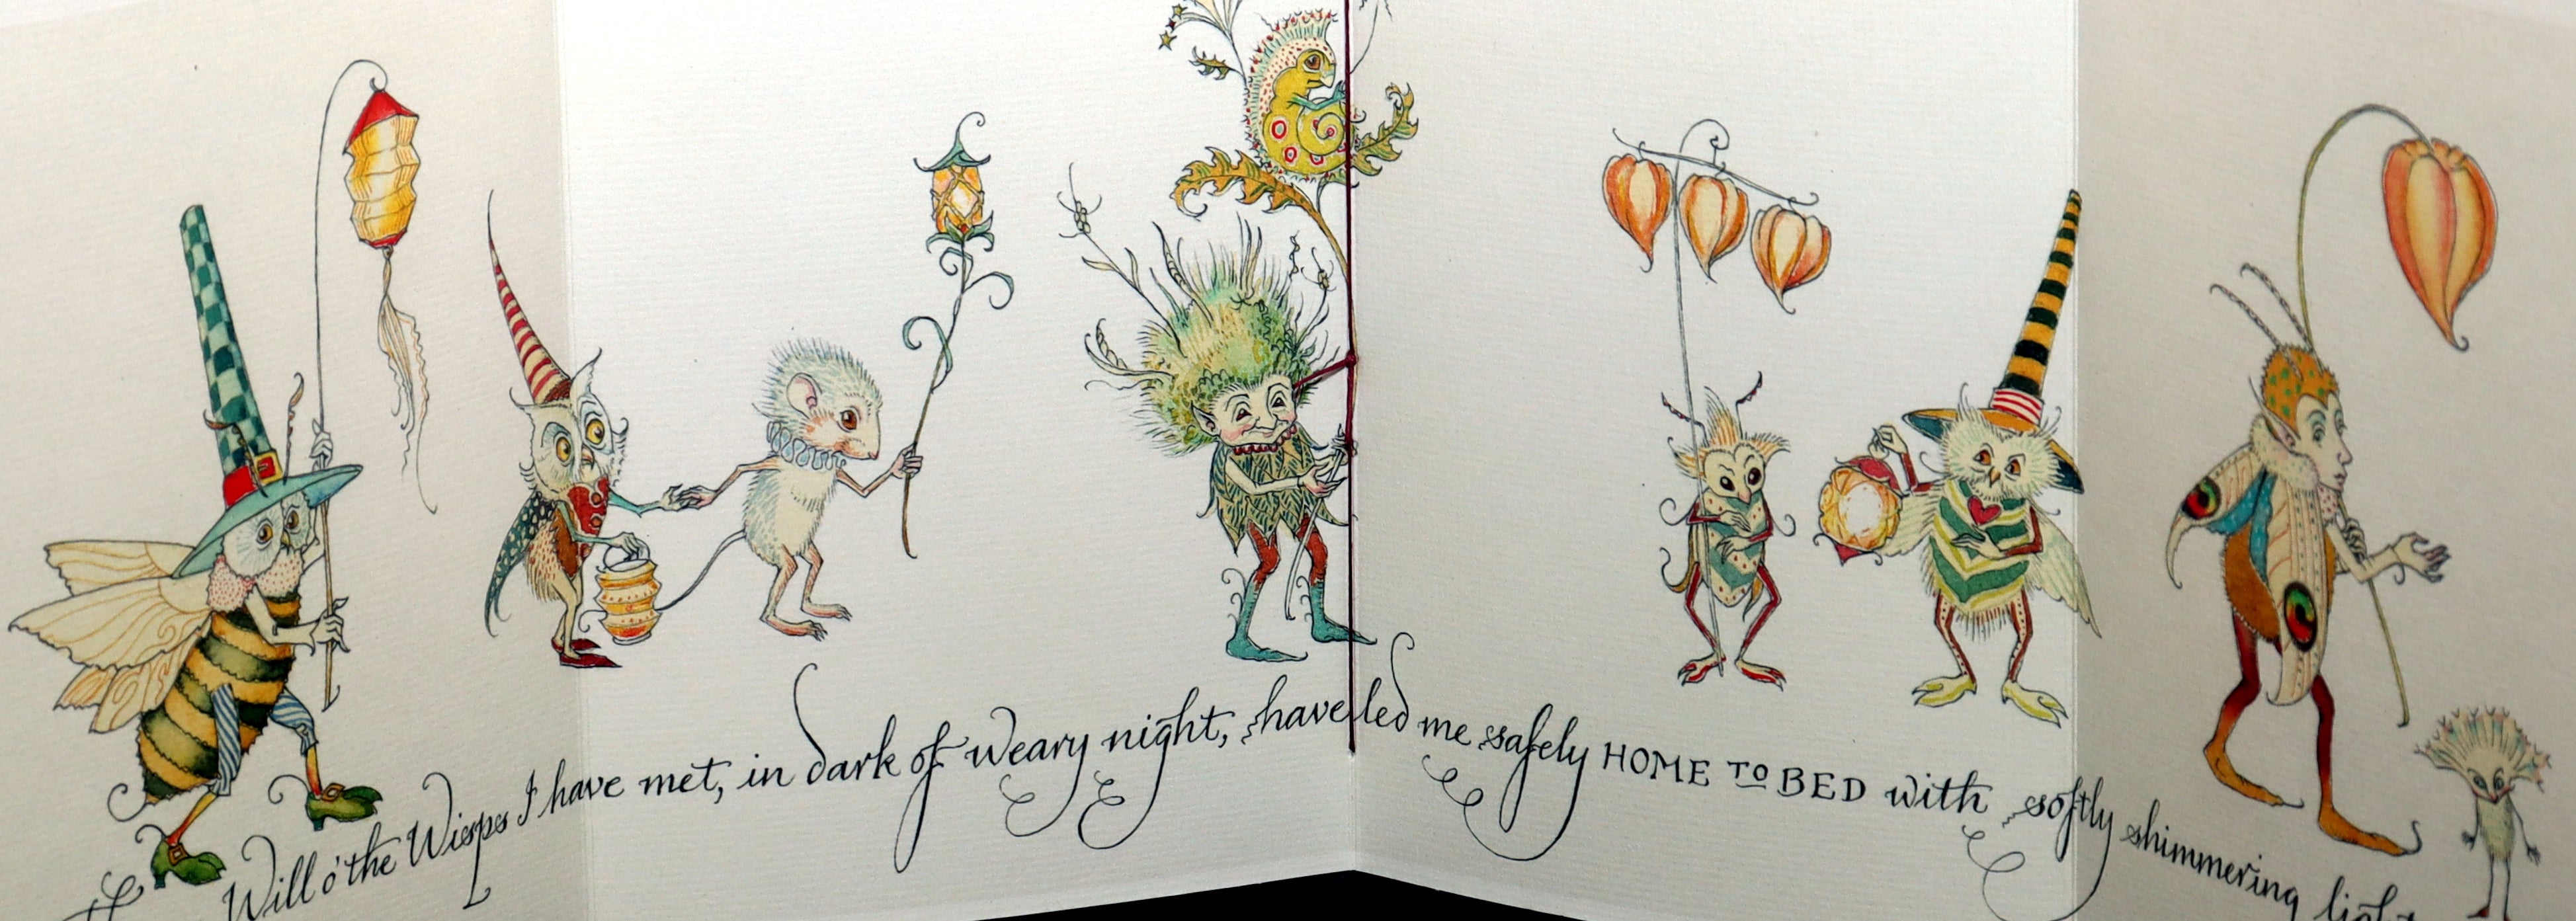 Will o' the Wisps I have met, in dark of weary night, have led me safely HOME TO BED with softly shimmering